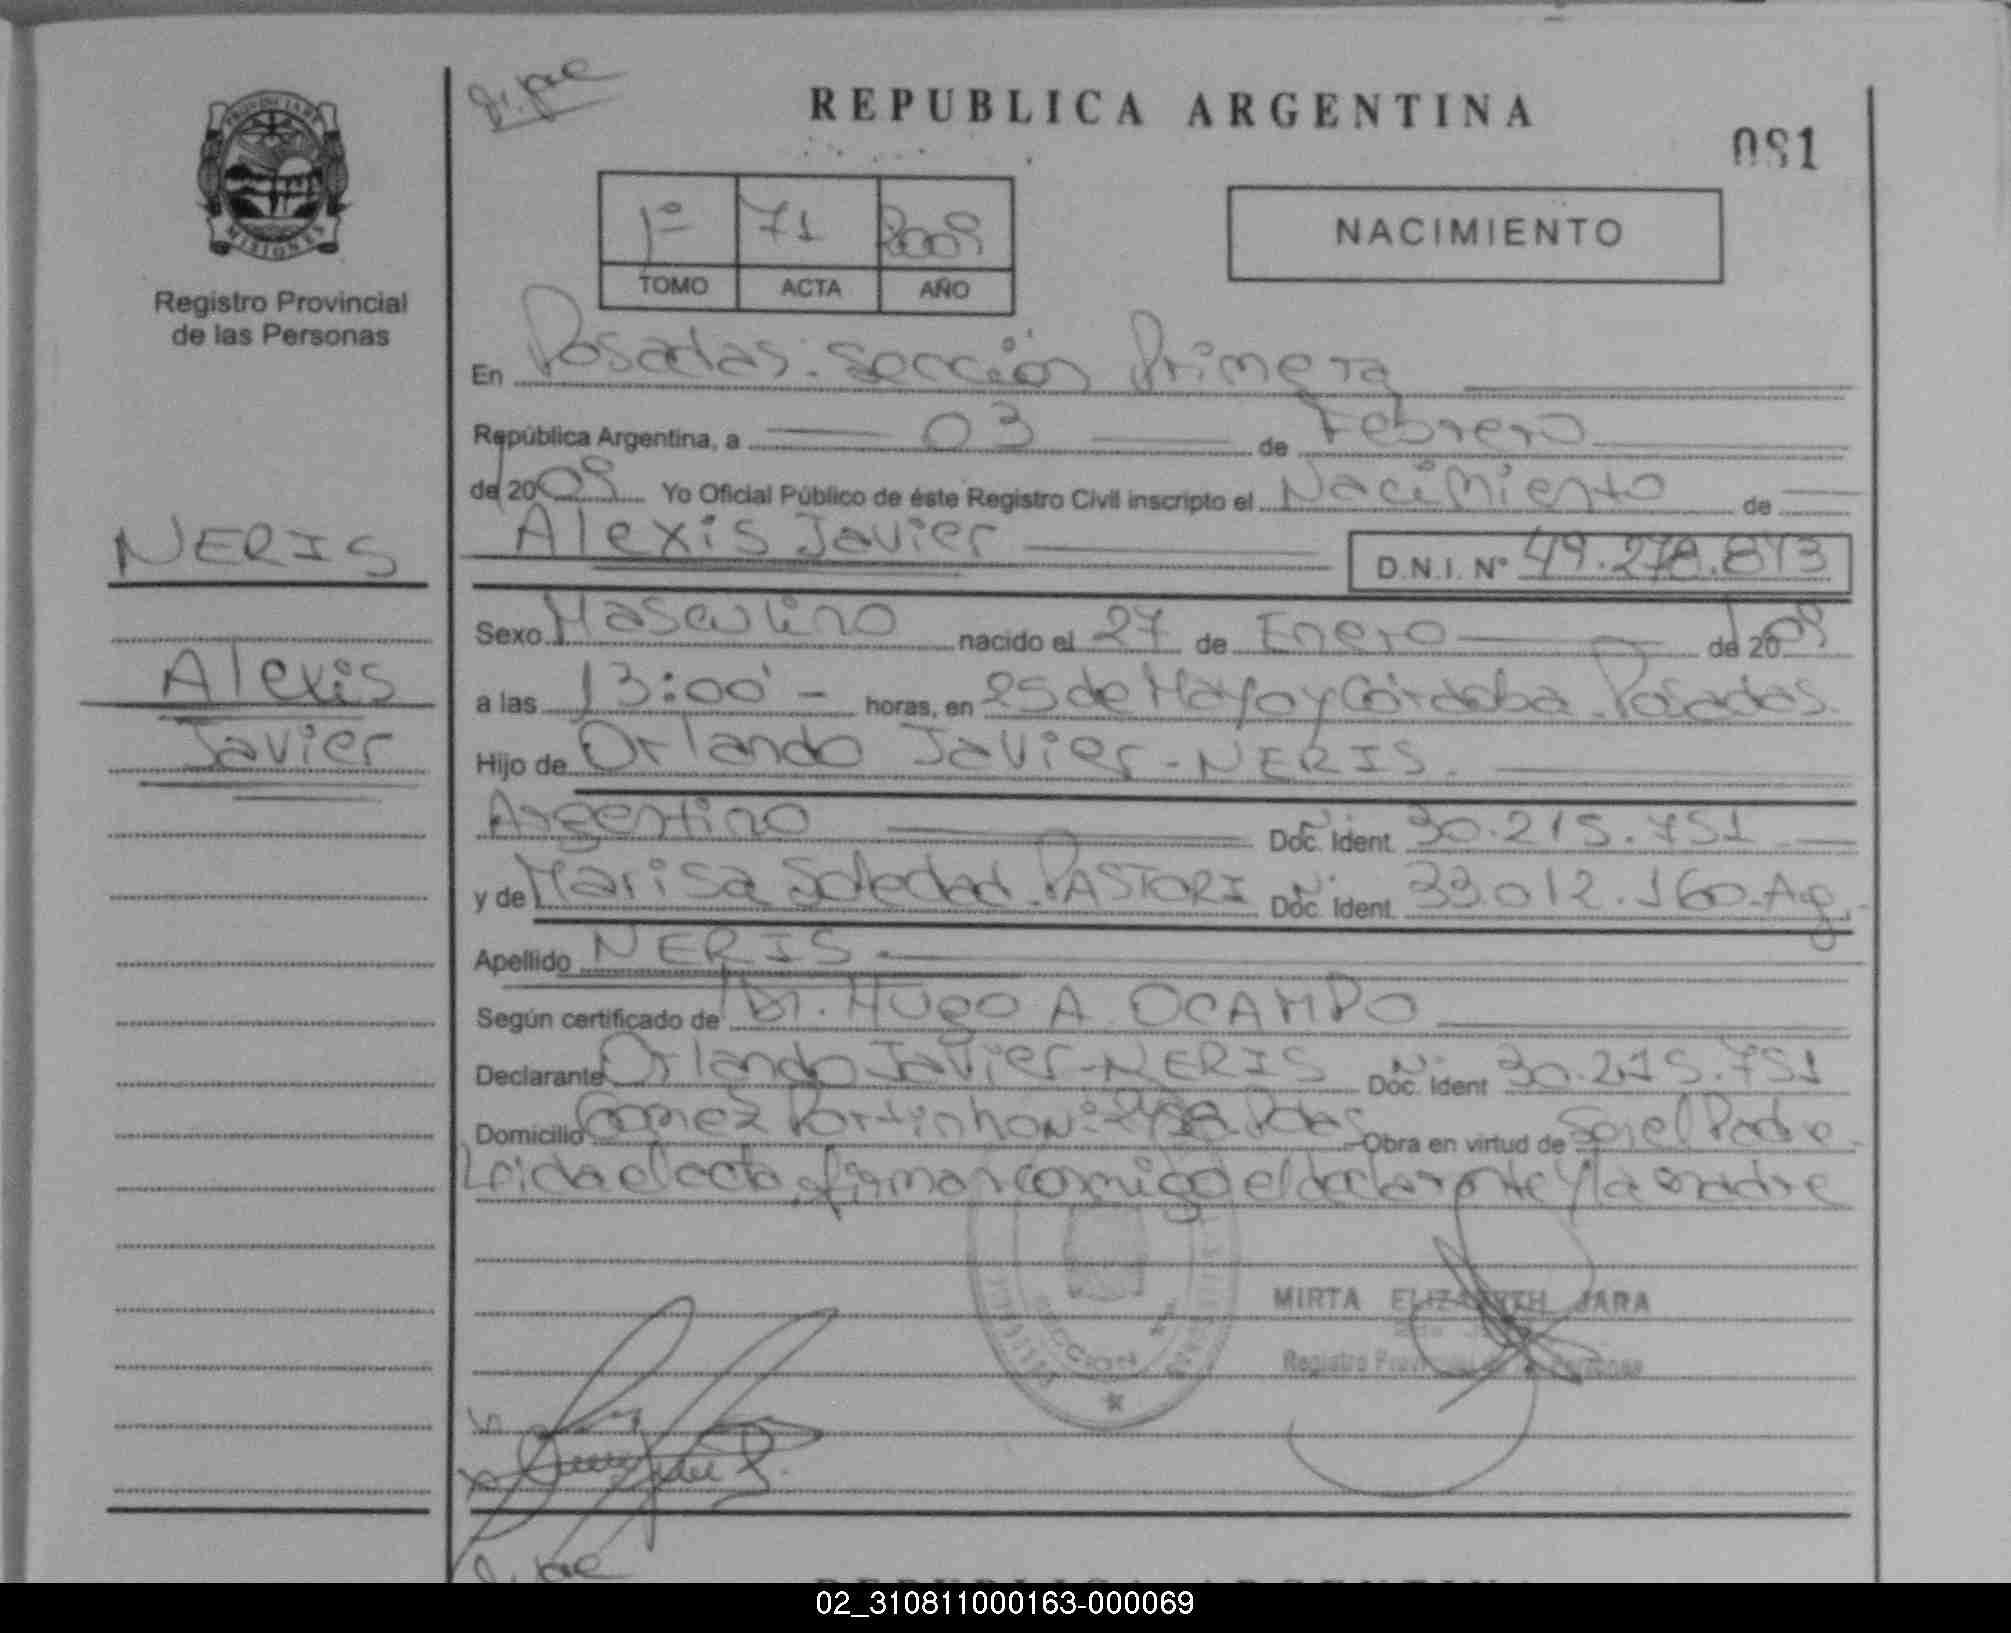 PROVINCIA DE
MISIONES
Registro Provincial
de las Personas
NERIS
Alexis
Javier
REPUBLICA ARGENTINA
081
1º 71 2009
TOMO ACTA AÑO
NACIMIENTO
En Posadas. Sección Primera
República Argentina, a 03 de Febrero
de 2009 Yo Oficial Público de éste Registro Civil inscripto el Nacimiento de
Alexis Javier D.N.I. Nº 49.278.873
Sexo Masculino nacido el 27 de Enero de 2009
a las 13:00' - horas, en 25 de Mayo y Córdoba. Posadas.
Hijo de Orlando Javier - NERIS.
Argentino Doc. Ident. 30.215.751
y de Marisa Soledad. PASTORI Doc. Ident. 33.012.160. Ag.
Apellido NERIS.
Según certificado de Dr. HUGO A. OCAMPO
Declarante Orlando Javier - NERIS Doc. Ident 30.215.751
Domicilio Gomez Portinho Nº Pdas Obra en virtud de Ser el Padre.
Leida el acta, firman conmigo el declarante y la madre
MIRTA ELIZABETH JARA
Registro Provincial de las Personas
SECCION
02_310811000163-000069